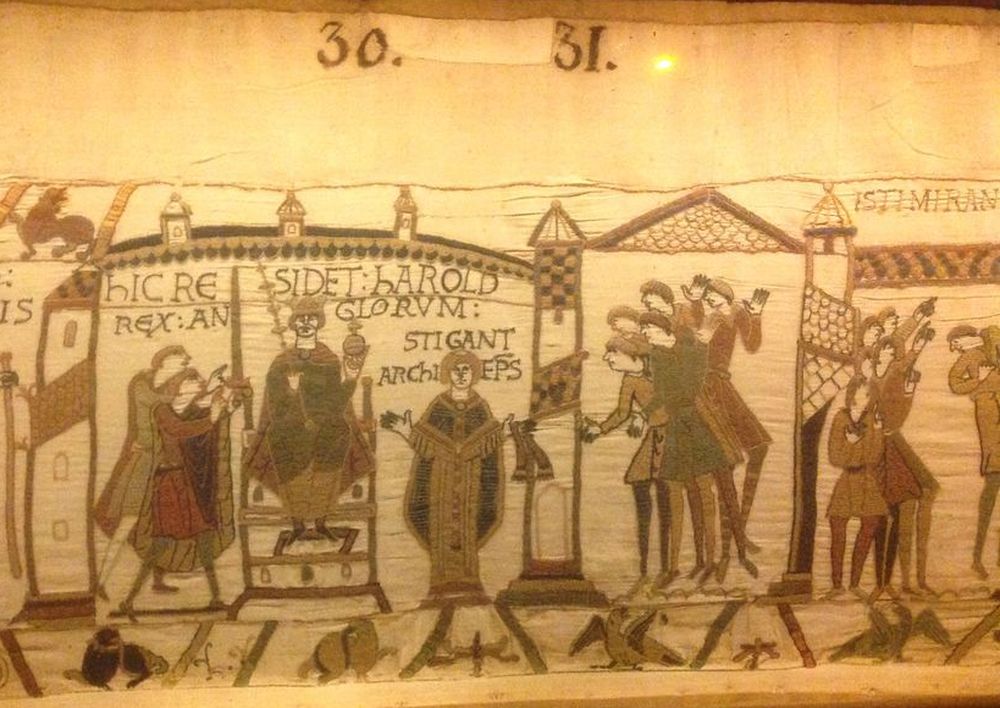 30. 31.
ISTI MIRAN
:
IS
HIC RE SIDET: HAROLD
REX: AN GLORVM:
STIGANT
ARCHI EP̄S